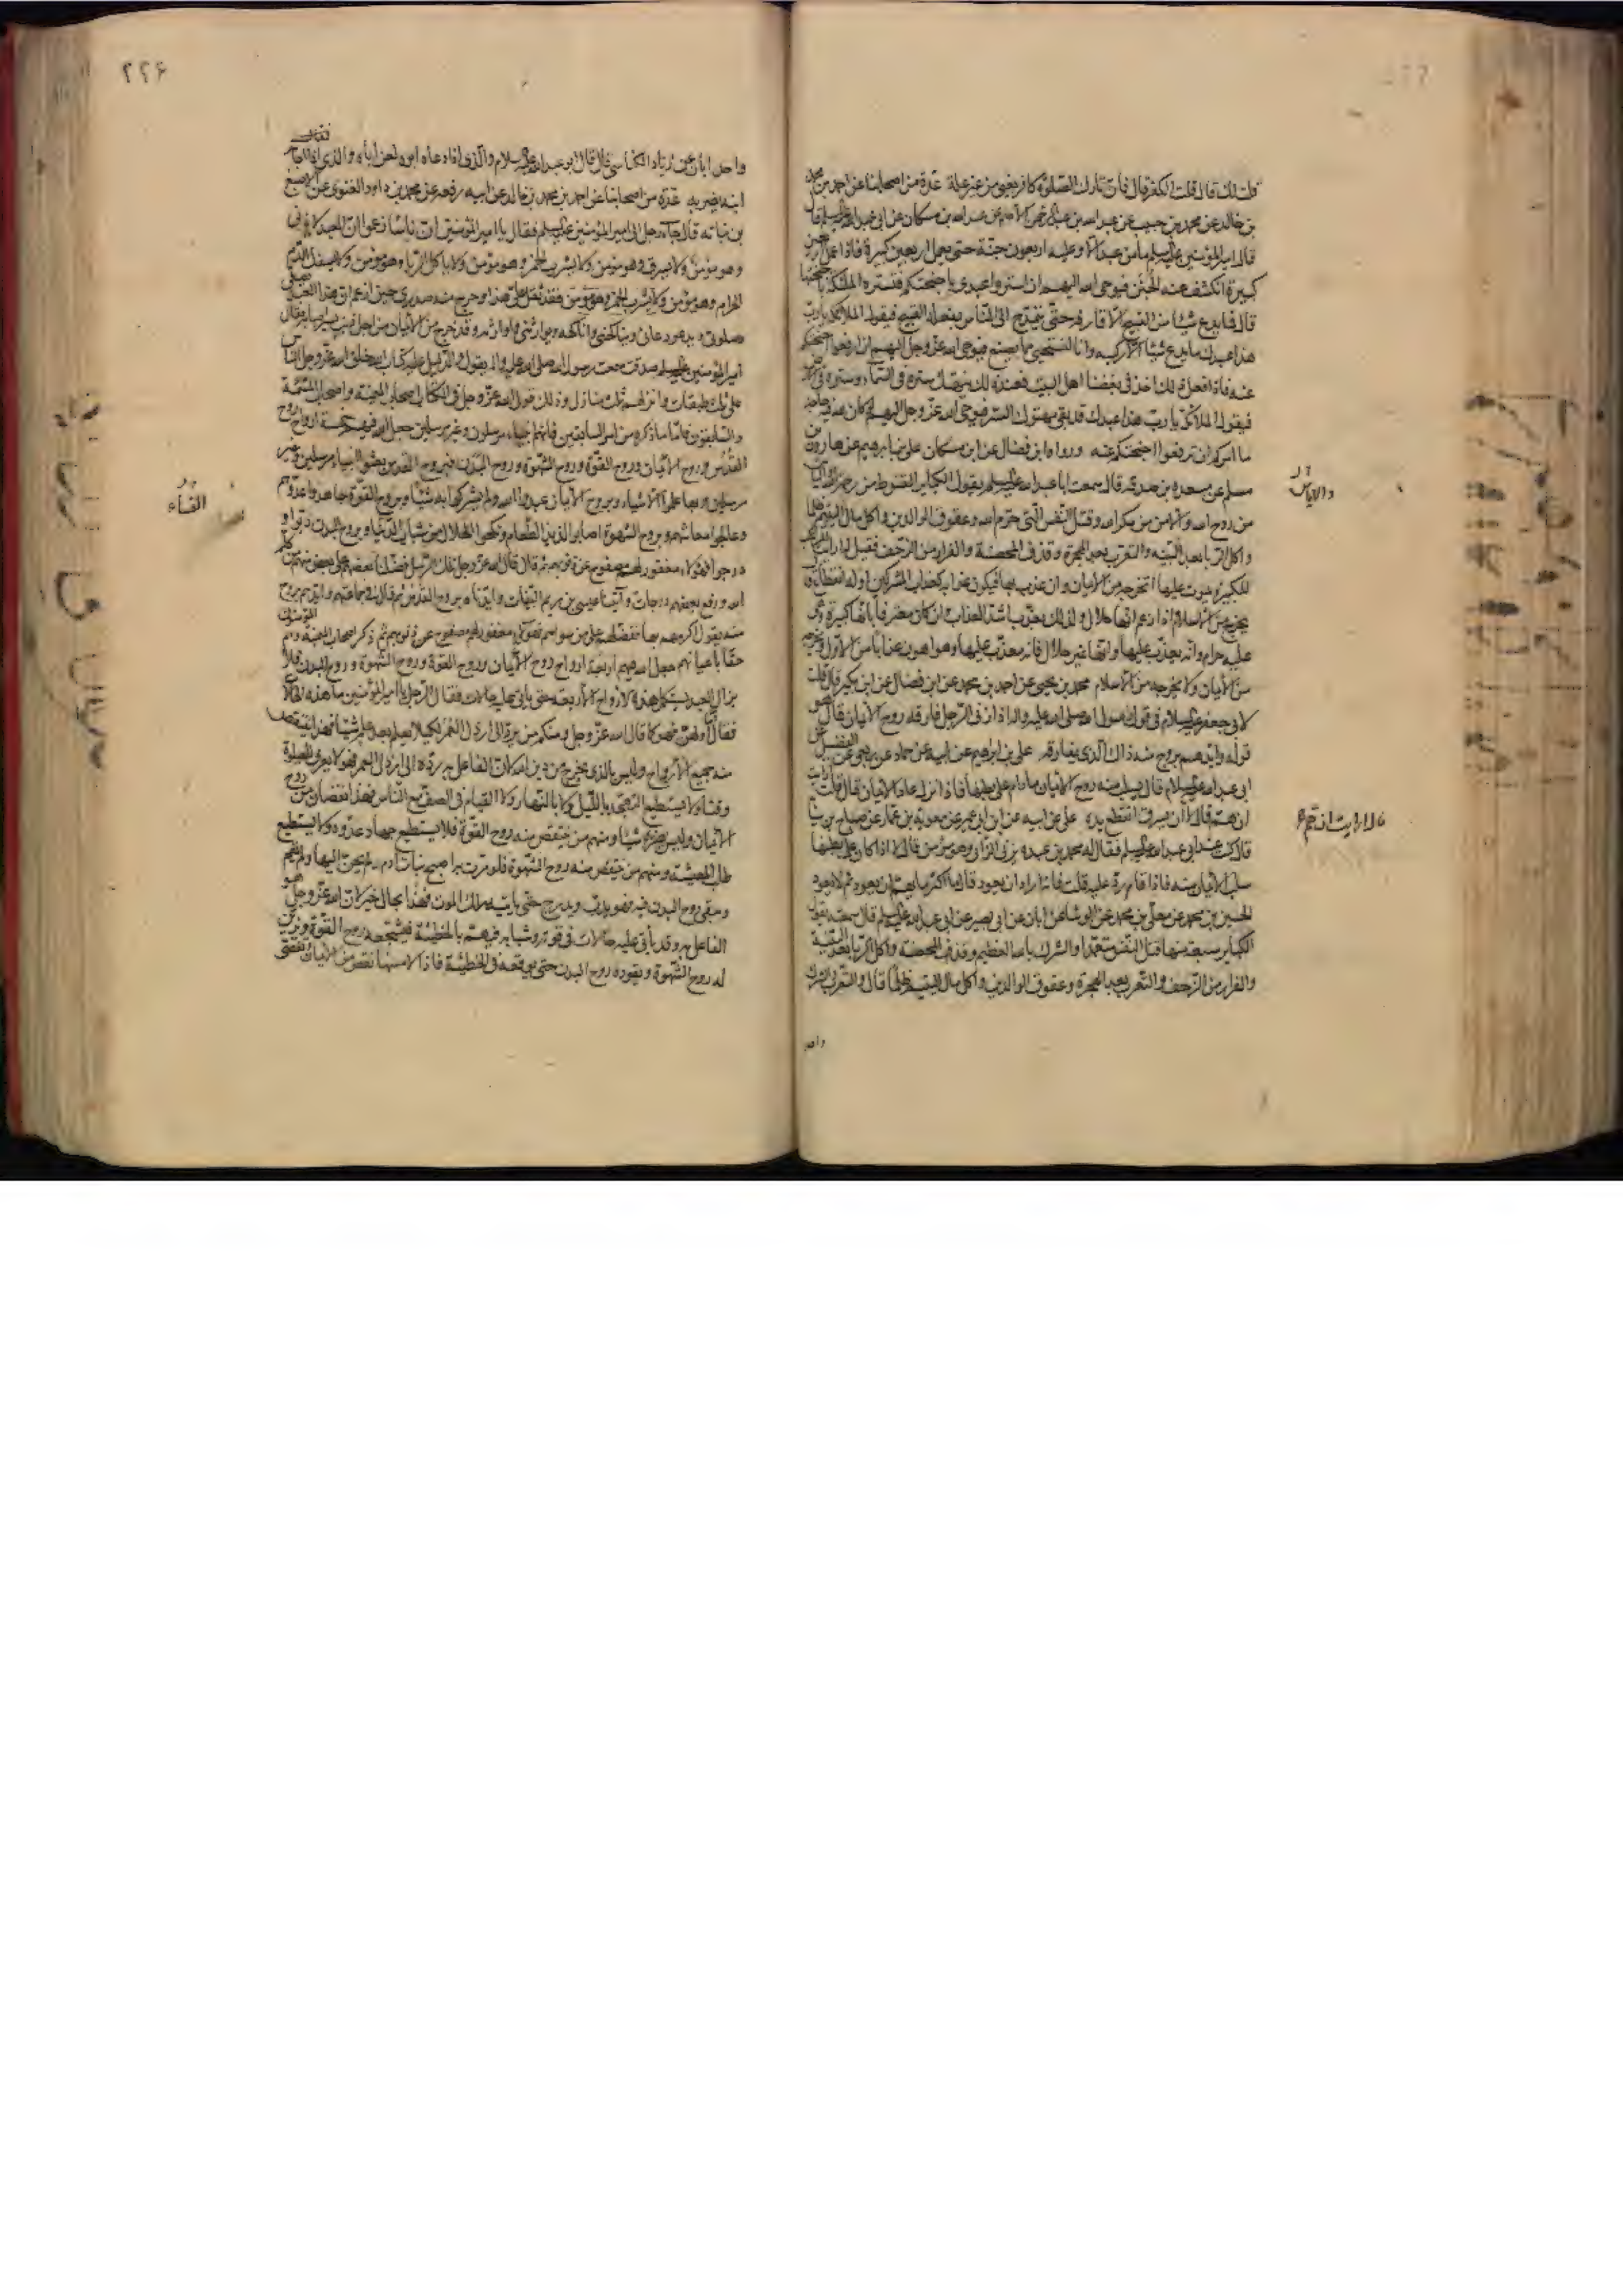 قلت لك قال قلت الكفر قال فان تارك الصلوة كافر يعني من غير علة عدة من اصحابنا عن احمد بن محمد
بن خالد عن محمد بن حبيب عن عبد الله بن عبد الرحمن الاصم عن عبد الله بن مسكان عن ابي عبد الله عليه السلم قال
قال امير المؤمنين عليه السلم ما من عبد الا وعليه اربعون جنة حتى يعمل اربعين كبيرة فاذا عمل اربعين
كبيرة انكشفت عنه الجنن فيوحى الله اليهم ان استروا عبدي باجنحتكم فتستره الملئكة باجنحتها
قال فما يدع شيئا من القبيح الا قارفه حتى يتمدح الى الناس بفعله القبيح فيقول الملائكة يا رب
هذا عبدك ما يدع شيئا الا ركبه وانا لنستحيي مما يصنع فيوحى الله عز وجل اليهم ان ارفعوا اجنحتكم
عنه فاذا فعل ذلك اخذ في بغضنا اهل البيت فعند ذلك ينهتك ستره في السماء وستره في الارض
فيقول الملائكة يا رب هذا عبدك قد بقي مهتوك الستر فيوحى الله عز وجل اليهم لو كان لله فيه حاجة
ما امركم ان ترفعوا اجنحتكم عنه ورواه ابن فضال عن ابن مسكان علي بن ابرهيم عن هارون بن
مسلم عن مسعدة بن صدقة قال سمعت ابا عبد الله عليه السلم يقول الكباير القنوط من رحمة الله والاياس
من روح الله والامن من مكر الله وقتل النفس التي حرم الله وعقوق الوالدين واكل مال اليتيم ظلما
واكل الربا بعد البينة والتعرب بعد الهجرة وقذف المحصنة والفرار من الزحف فقيل له ارايت المرتكب
للكبيرة يموت عليها اتخرجه من الايمان وان عذب بها فيكون عذابه كعذاب المشركين او له انقطاع قال
يخرج من الاسلام اذا زعم انها حلال ولذلك يعذب باشد العذاب وان كان معترفا بانها كبيرة وهي
عليه حرام وانه يعذب عليها وانها غير حلال فانه معذب عليها وهو اهون عذابا من الاول ويخرجه
من الايمان ولا يخرجه من الاسلام محمد بن يحيى عن احمد بن محمد عن ابن فضال عن ابن بكير قال قلت
لابي جعفر عليه السلام في قول رسول الله صلى الله عليه واله اذا زنى الرجل فارقه روح الايمان قال هو
قوله وايدهم بروح منه ذاك الذي يفارقه علي بن ابراهيم عن ابيه عن حماد عن ربعي عن الفضيل عن
ابي عبد الله عليه السلام قال يسلب منه روح الايمان ما دام على بطنها فاذا نزل عاد الايمان قال قلت ارايت
ان هم قال لا ان سرق اتقطع يده علي عن ابيه عن ابن ابي عمير عن معوية بن عمار عن صباح بن سيابة
قال كنت عند ابي عبد الله عليه السلم فقال له محمد بن عبده يزني الزاني وهو مؤمن قال لا اذا كان على بطنها
سلب الايمان منه فاذا قام رد عليه قلت فانه اراد ان يعود قال ما اكثر ما يهم ان يعود ثم لا يعود
الحسين بن محمد عن معلى بن محمد عن الوشا عن ابان عن ابي بصير عن ابي عبد الله عليه السلم قال سمعته يقول
الكباير سبعة منها قتل النفس متعمدا والشرك بالله العظيم وقذف المحصنة واكل الربا بعد البينة
والفرار من الزحف والتعرب بعد الهجرة وعقوق الوالدين واكل مال اليتيم ظلما قال والتعرب والشرك
واحد
والاياس
قال ارايت ان هم
٢٢۶
واحد ابان عن زياد الكناسي قال قال ابو عبد الله عليه السلام والذي اذا دعاه ابوه لعن اباه والذي اذا اجابه
ابنه يضربه عدة من اصحابنا عن احمد بن محمد بن خالد عن ابيه رفعه عن محمد بن داود الغنوي عن الاصبغ
بن نباته قال جاء رجل الى امير المؤمنين عليه السلم فقال يا امير المؤمنين ان ناسا زعموا ان العبد لا يزني
وهو مؤمن ولا يسرق وهو مؤمن ولا يشرب الخمر وهو مؤمن ولا ياكل الربا وهو مؤمن ولا يسفك الدم
الحرام وهو مؤمن فقد ثقل علي هذا وحرج منه صدري حين ازعم ان هذا العبد يصلي
صلوتي ويدعو دعائي ويناكحني واناكحه ويوارثني واوارثه وقد خرج من الايمان من اجل ذنب يسير اصابه فقال
امير المؤمنين عليه السلم صدقت سمعت رسول الله صلى الله عليه واله يقول والدليل عليه كتاب الله خلق الله عز وجل الناس
على ثلث طبقات وانزلهم ثلث منازل وذلك قول الله عز وجل في الكتاب اصحاب الميمنة واصحاب المشئمة
والسابقون فاما ما ذكره من امر السابقين فانهم انبياء مرسلون وغير مرسلين جعل الله فيهم خمسة ارواح روح
القدس وروح الايمان وروح القوة وروح الشهوة وروح البدن فبروح القدس بعثوا انبياء مرسلين وغير
مرسلين وبها علموا الاشياء وبروح الايمان عبدوا الله ولم يشركوا به شيئا وبروح القوة جاهدوا عدوهم
وعالجوا معاشهم وبروح الشهوة اصابوا لذيذ الطعام ونكحوا الحلال من شباب النساء وبروح البدن دبوا و
درجوا فهؤلاء مغفور لهم مصفوح عن ذنوبهم ثم قال قال الله عز وجل تلك الرسل فضلنا بعضهم على بعض منهم من كلم
الله ورفع بعضهم درجات وآتينا عيسى بن مريم البينات وايدناه بروح القدس ثم قال في جماعتهم وايدهم بروح
منه يقول اكرمهم بها ففضلهم على من سواهم فهؤلاء مغفور لهم مصفوح عن ذنوبهم ثم ذكر اصحاب الميمنة وهم المؤمنون
حقا باعيانهم جعل الله فيهم اربعة ارواح روح الايمان وروح القوة وروح الشهوة وروح البدن فلا
يزال العبد يستكمل هذه الارواح الاربعة حتى ياتي عليه حالات فقال الرجل يا امير المؤمنين ما هذه الحالات
فقال اما اوليهن فهو كما قال الله عز وجل ومنكم من يرد الى ارذل العمر لكيلا يعلم بعد علم شيئا فهذا ينتقص
منه جميع الارواح وليس بالذي يخرج من دين الله لان الفاعل به رده الى ارذل العمر فهو لا يعرف للصلوة
وقتا ولا يستطيع التهجد بالليل ولا بالنهار ولا القيام في الصف مع الناس فهذا نقصان من روح
الايمان وليس يضره شيئا ومنهم من ينتقص منه روح القوة فلا يستطيع جهاد عدوه ولا يستطيع
طلب المعيشة ومنهم من ينتقص منه روح الشهوة فلو مرت به اصبح بنات ادم لم يحن اليها ولم يقم
وتبقى روح البدن فيه فهو يدب ويدرج حتى ياتيه ملك الموت فهذا بحال خير لان الله عز وجل هو
الفاعل به وقد يأتي عليه حالات في قوته وشبابه فيهم بالخطيئة فيشجعه روح القوة ويزين
له روح الشهوة ويقوده روح البدن حتى يوقعه في الخطيئة فاذا لامسها نقص من الايمان وتفصى
النساء